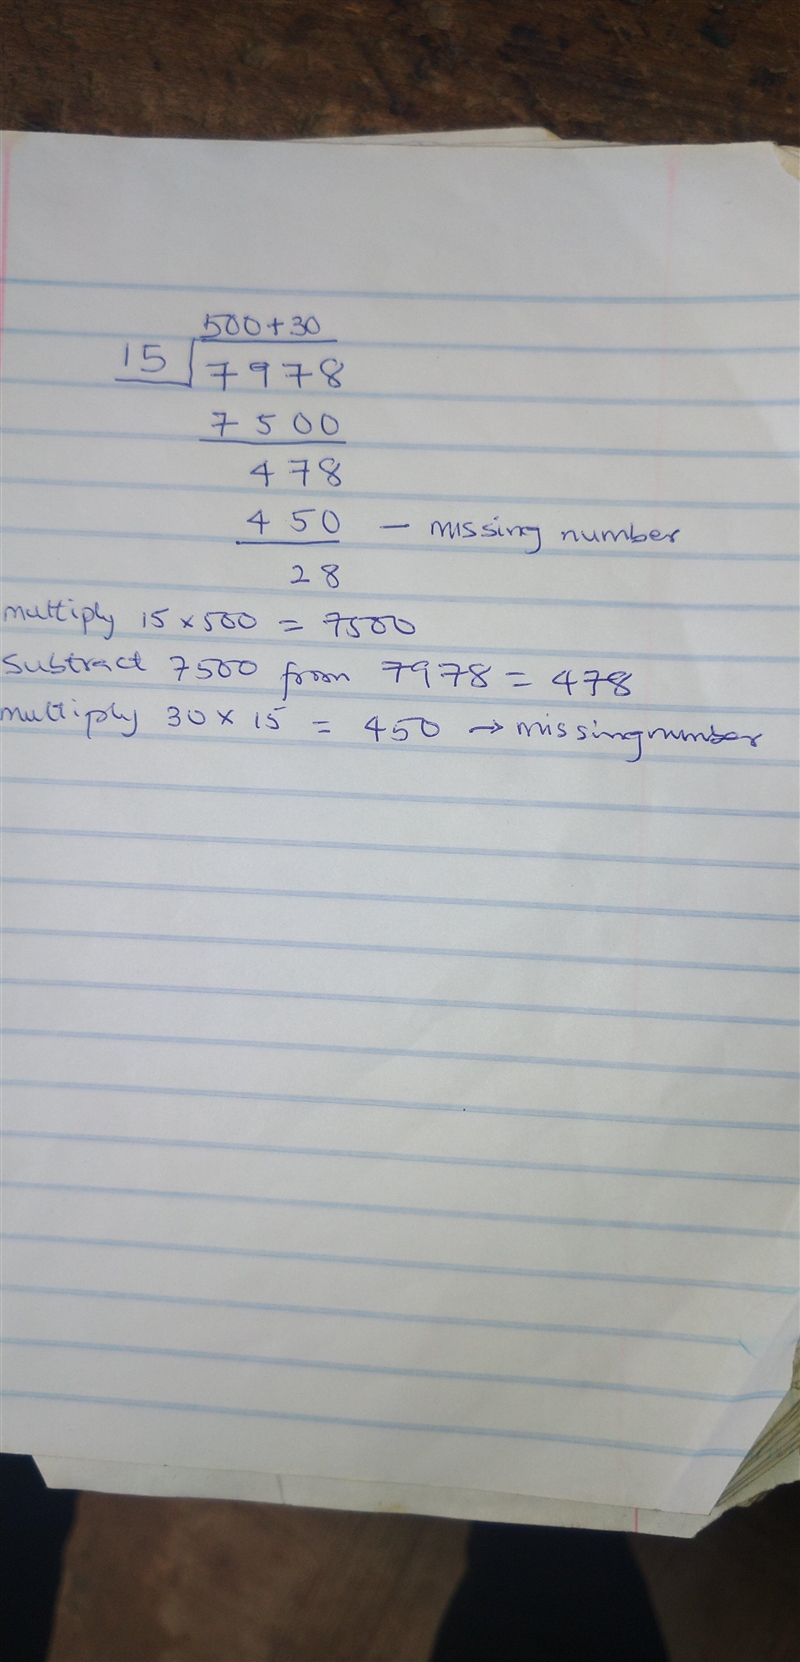 500+30
15 7978
7500
478
450 - missing number
28
multiply 15 × 500 = 7500
Subtract 7500 from 7978 = 478
multiply 30 × 15 = 450 → missing number